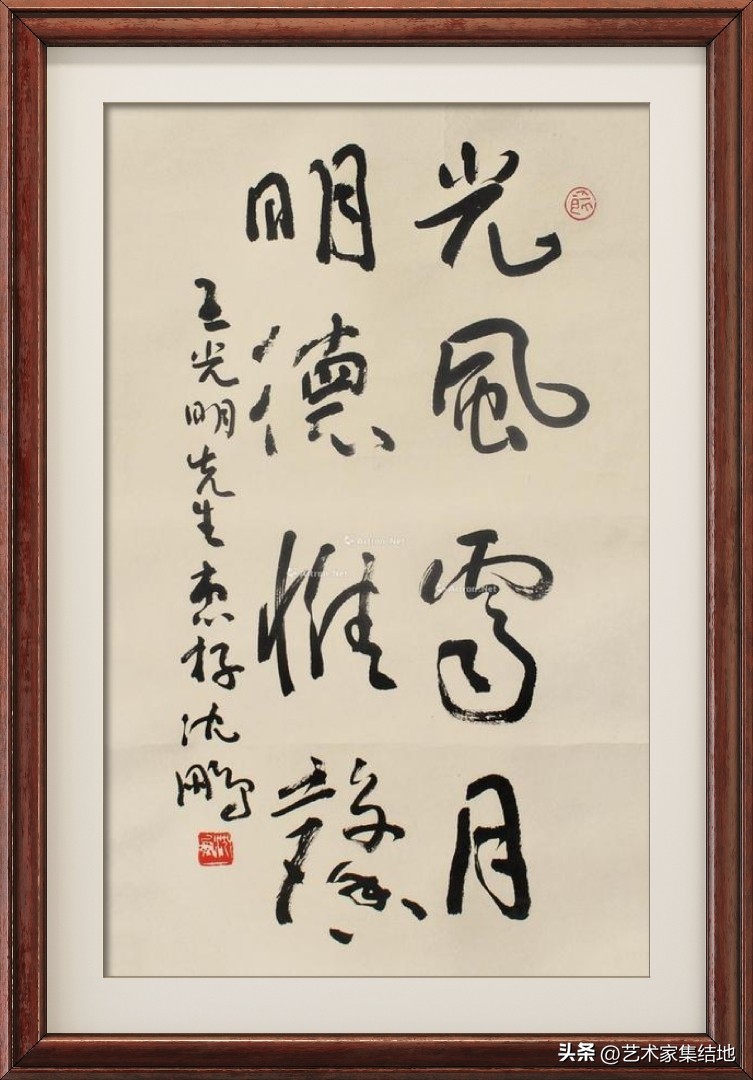 光風霽月
明德惟馨
王光明先生惠存 沈鵬
Artron.Net
Artron.Net
Artron.Net
头条 @艺术家集结地